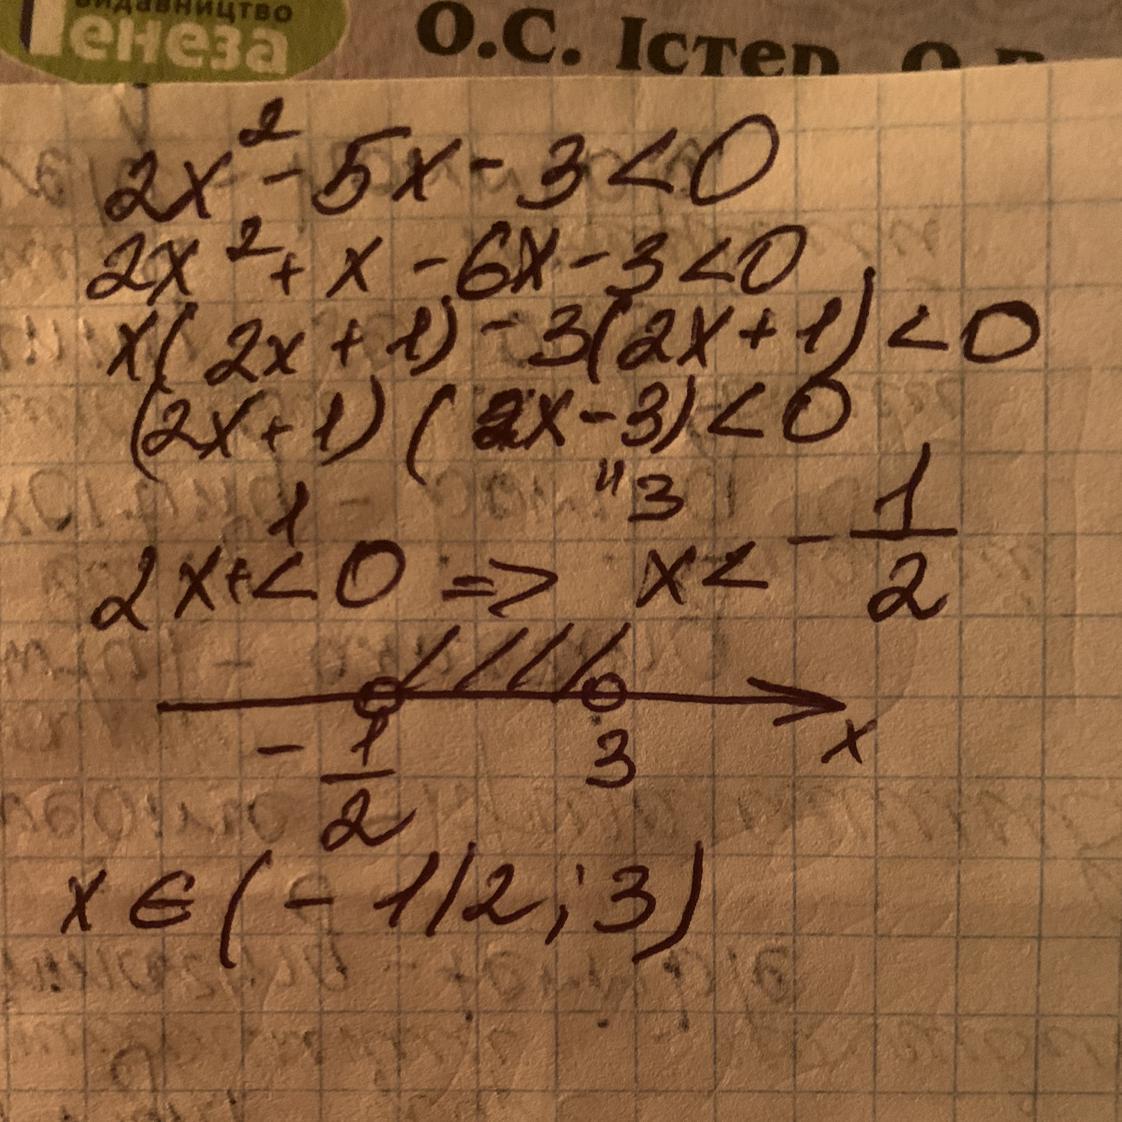 видавництво
Генеза
О.С. Істер
2x² - 5x - 3 < 0
2x² + x - 6x - 3 < 0
x(2x + 1) - 3(2x + 1) < 0
(2x + 1)(2x - 3) < 0
"3
2x + 1 < 0 => x < - 1/2
- 1/2 3 x
x ∈ (- 1/2 ; 3)